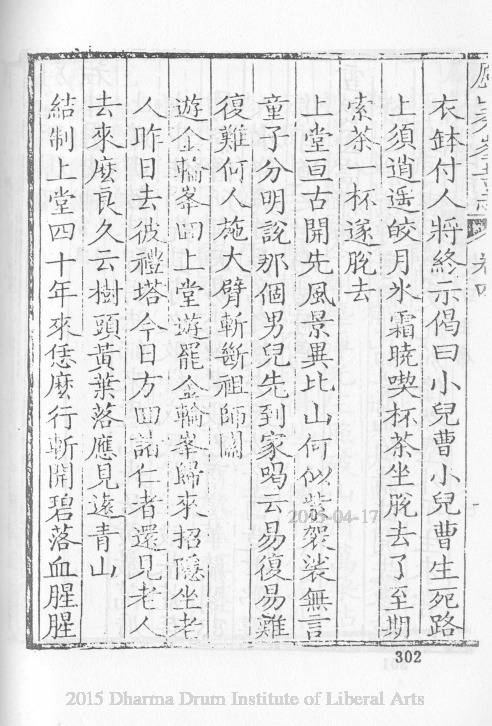 衣鉢付人將終示偈曰小兒曹小兒曹生死路
上須逍遥皎月氷霜曉喫杯茶坐脫去了至期
索茶一杯遂脫去
上堂亘古開先風景異比山何似紫袈裟無言
童子分明說那個男兒先到家喝云易復易難
復難何人施大臂斬斷祖師關
遊金輪峯回上堂遊罷金輪峯歸來招隱坐老
人昨日去彼禮塔今日方回諸仁者還見老人
去來麽良久云樹頭黃葉落應見遠青山
結制上堂四十年來恁麽行斬開碧落血腥腥
2005-04-17
302
2015 Dharma Drum Institute of Liberal Arts